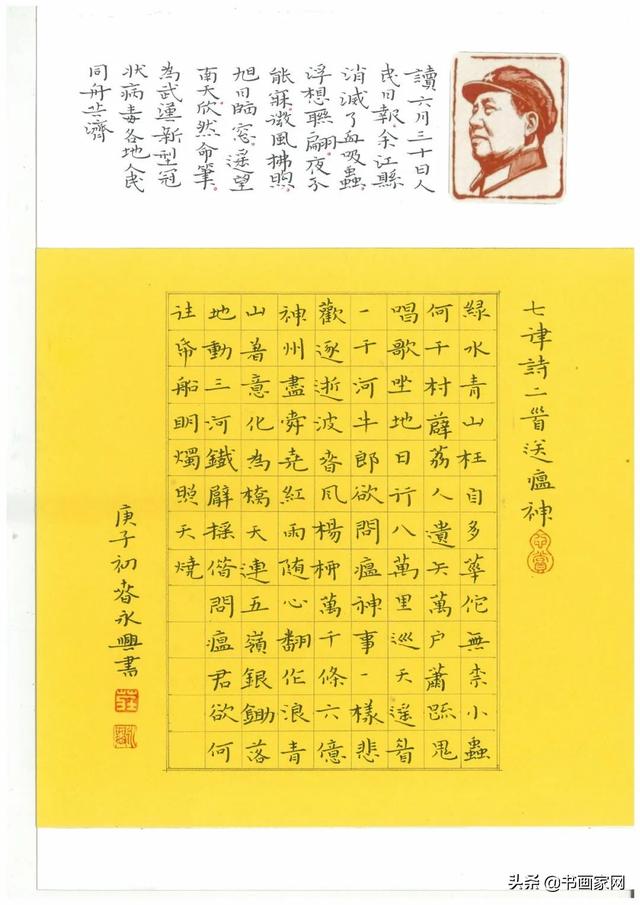 讀六月三十日人
民日報.余江縣
消滅了血吸蟲.
浮想聯翩.夜不
能寐.微風拂煦.
旭日臨窗.遥望
南天.欣然命筆.
為武漢新型冠
狀病毒各地人民
同舟共濟
七律詩二首送瘟神
綠水青山枉自多華佗無奈小蟲
何千村薜荔人遺矢萬户蕭疏鬼
唱歌坐地日行八萬里巡天遥看
一千河牛郎欲問瘟神事一樣悲
歡逐逝波春風楊柳萬千條六億
神州盡舜堯紅雨随心翻作浪青
山着意化為橋天連五嶺銀鋤落
地動三河鐵臂摇借問瘟君欲何
往紙船明燭照天燒
庚子初春永興書
头条 @书画家网